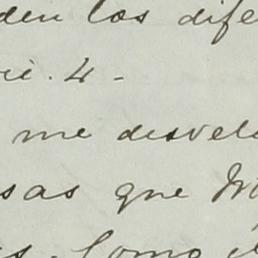 den los dife
4-
me desvel
sas que
Como